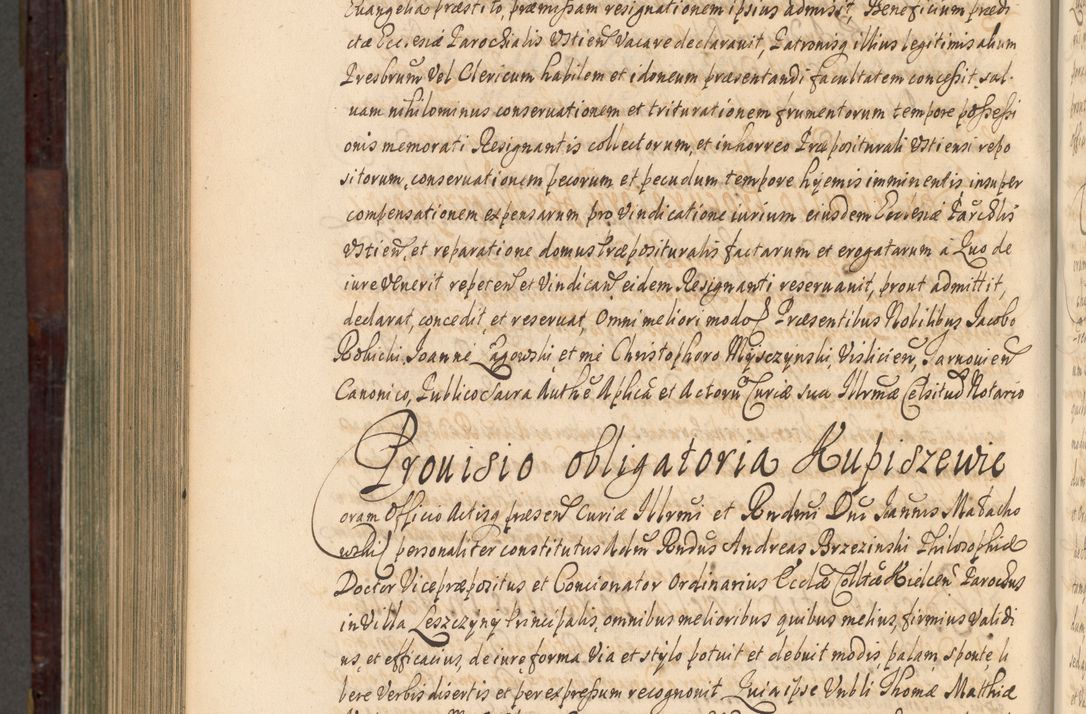 Euangelia præstito, præmissam resignationem ipsius admisit, Beneficium prædi
ctæ Ecclesiæ Parochialis Vstien̄ Vacare declarauit, Patronisq illius legitimis alium
Presbrum̄ Vel Clericum habilem et idoneum præsentandi facultatem concessit, sal-
uam nihilominus conseruationem et triturationem frumentorum tempore possessi
onis memorati Resignantis collectorum, et in horreo Præposituurali Vstiensi repo
sitorum, conseruationem pecorum et pecudum tempore hyemis imminentis, insuper
compensationem expensarum pro Vindicatione iurium eiusdem Ecclesiæ Parchlis
Vstien̄, et reparatione domus Præposituralis factarum et erogatarum a Quo de
iure Venerit repeten̄ et Vindican̄ eidem Resignanti reseruauit, prout admittit,
declarat, concedit, et reseruat, Omni meliori modo. Præsentibus Nobilibus Jacobo
Robicki, Joanne Łagowski, et me Christophoro Mysczynski, Vislicien̄, Tarnouien̄
Canonico, Publico Sacra Authē Aplicā et Actorū Curiæ suæ Illrmæ Celsitud Notario
Prouisio obligatoria Kupiszewic
oram Officio Actisq præsen̄ Curiæ Illrmi et Rndmi Dni Joannis Małacho
wski personaliter constitutus Adm̄ Rndus Andreas Brzezinski Philosophiæ
Doctor Vicepræpositus et Concionator Ordinarius Ecclæ Colltæ Kielcen̄ Parochus
in Villa Leszczyny Principalis, omnibus melioribus quibus melius, firmius Validi
us, et efficacius, de iure forma Via et stylo potuit et debuit modis, palam sponte, li
bere Verbis disertis et per expressum recognouit, Quia ipse Vnbli Thomæ Matthiæ